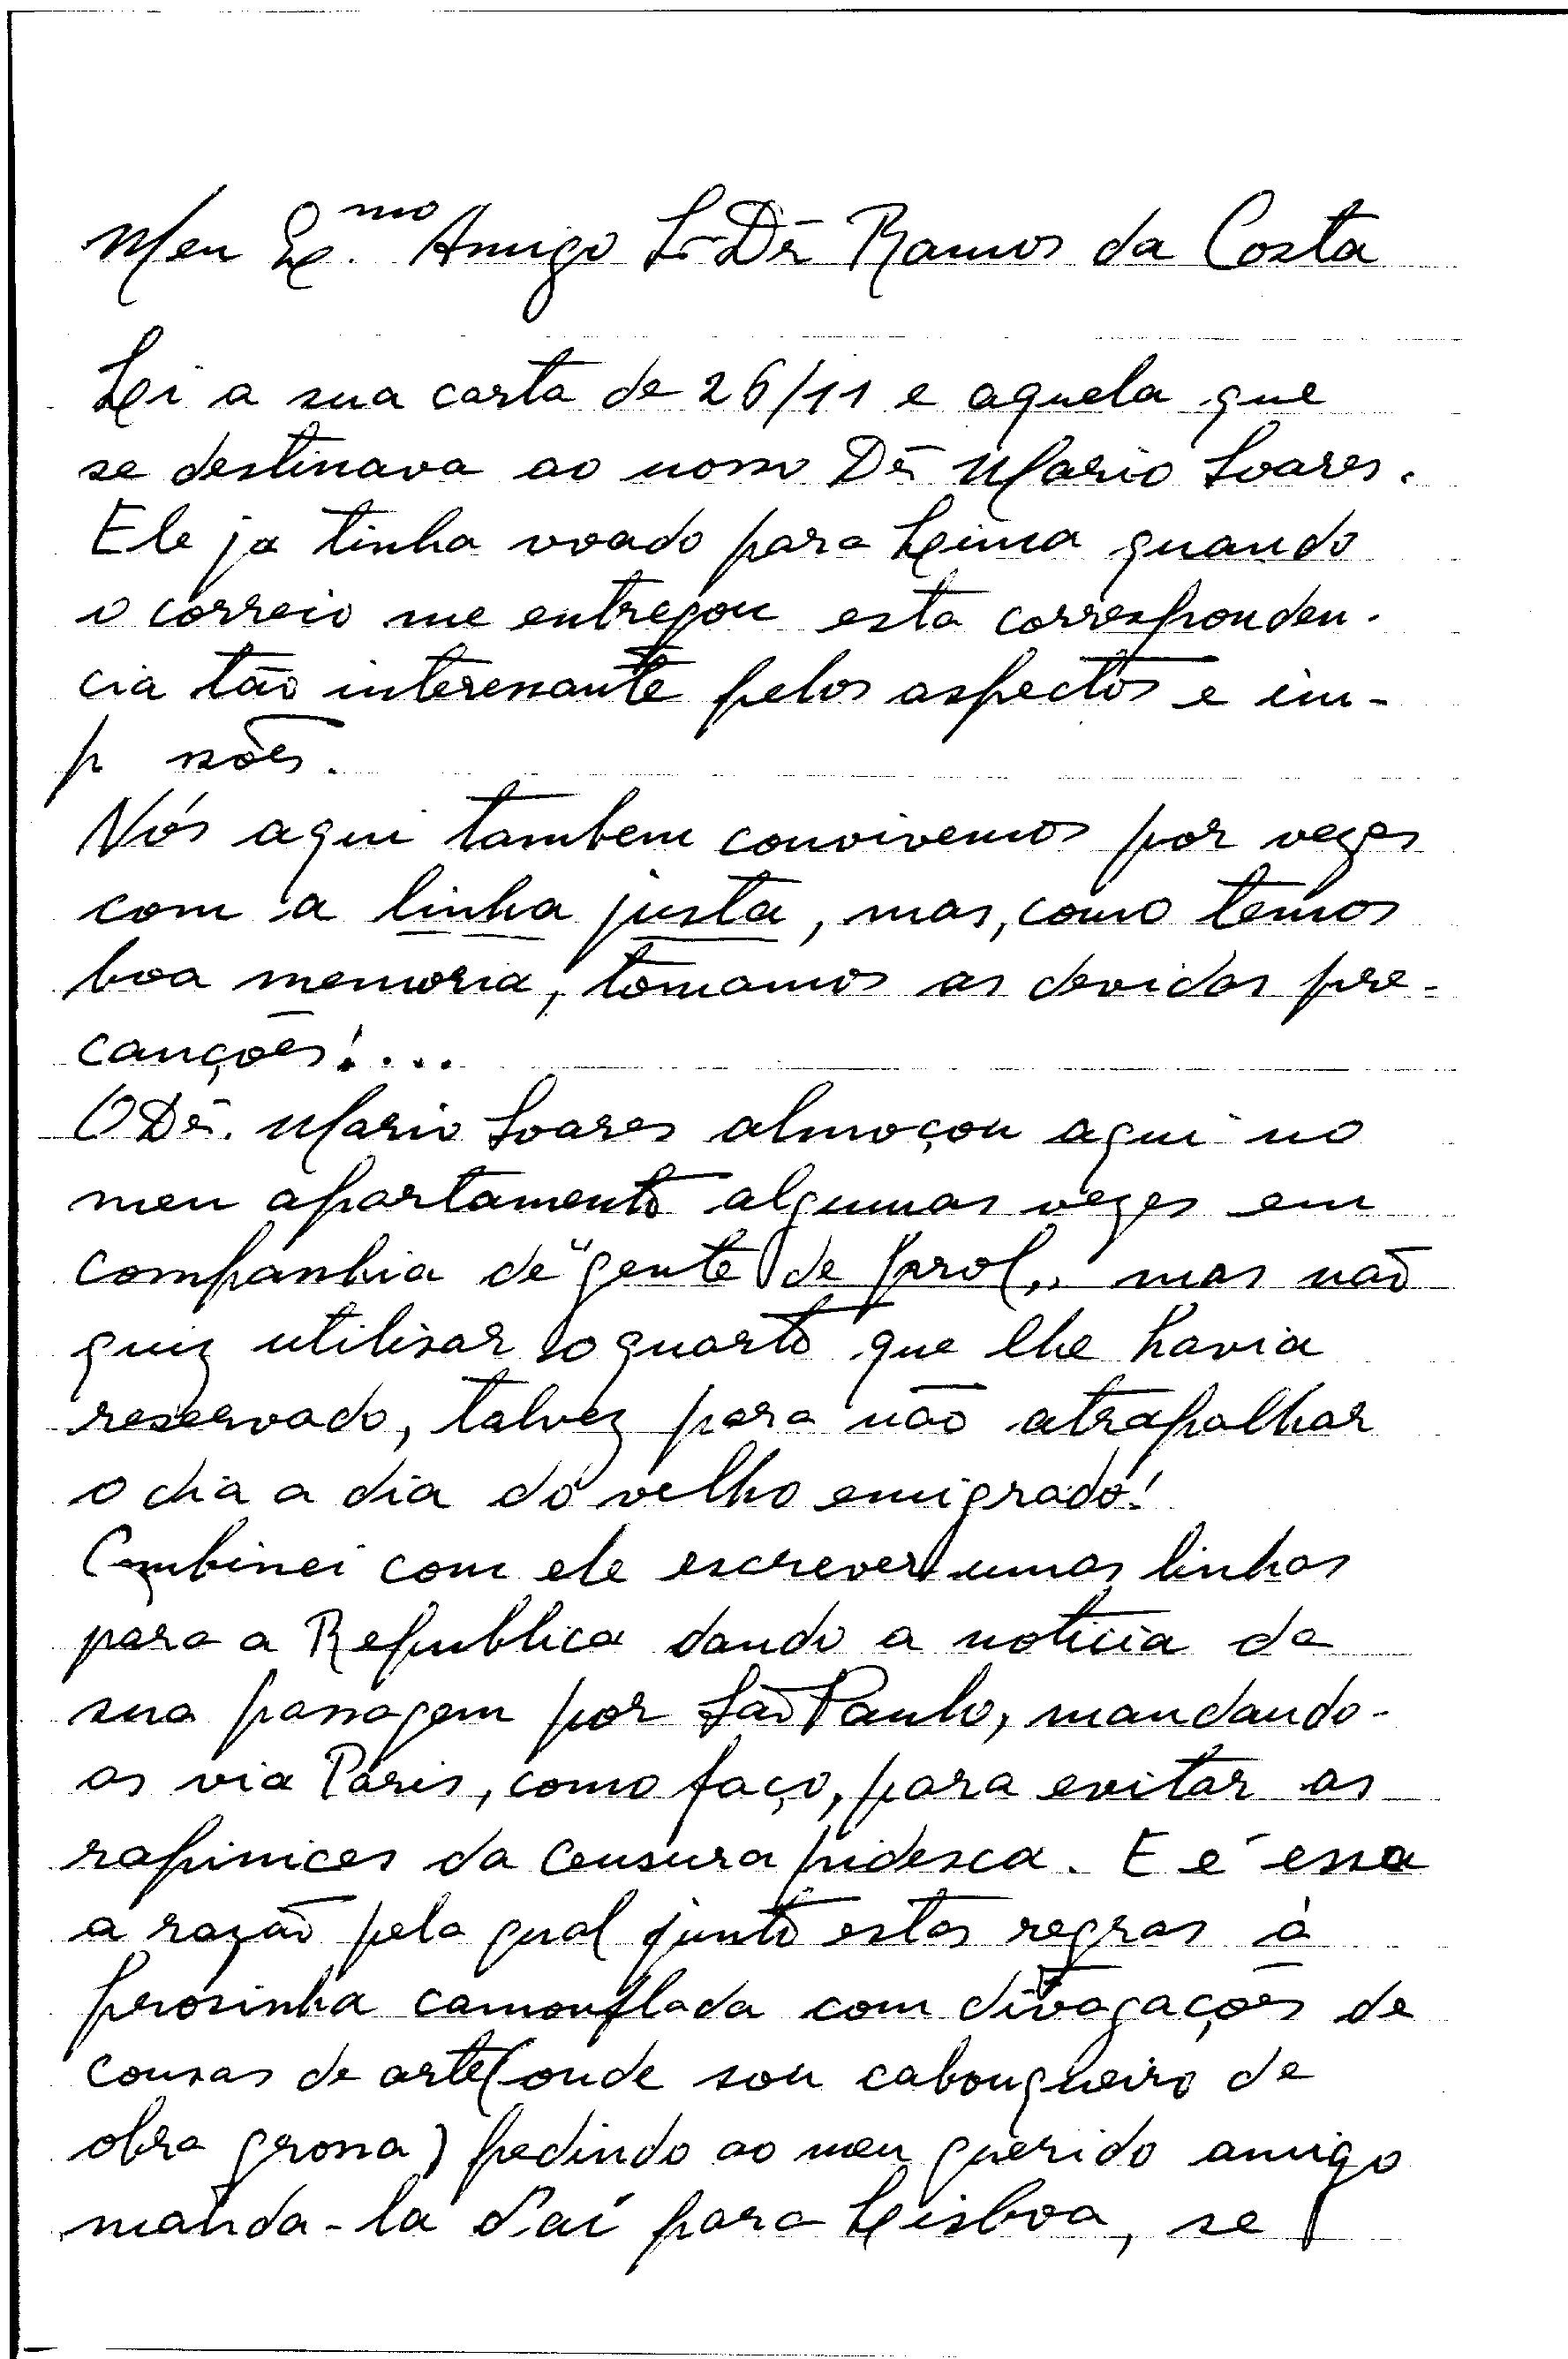 Meu Ex.mo Amigo Sr Dr Ramos da Costa
Li a sua carta de 26/11 e aquela que
se destinava ao nosso Dr Mario Soares.
Ele ja tinha voado para Lima quando
o correio me entregou esta corresponden-
cia tão interessante pelos aspectos e im-
p sões.
Nós aqui tambem convivemos por vezes
com a linha justa, mas, como temos
boa memoria, tomamos as devidas pre-
cauções!...
O Dr. Mario Soares almoçou aqui no
meu apartamento algumas vezes em
companhia de "gente de prol" mas não
quiz utilisar o quarto que lhe havia
reservado, talvez para não atrapalhar
o dia a dia do velho emigrado!
Combinei com ele escrever umas linhas
para a Republica dando a noticia da
sua passagem por São Paulo, mandando-
as via Paris, como faço, para evitar as
rapinices da Censura pidesca. E é essa
a razão pela qual junto estas regras à
prosinha camouflada com divagações de
cousas de arte (onde sou cabouqueiro de
obra grossa) pedindo ao meu querido amigo
manda-la d'aí para Lisboa, se